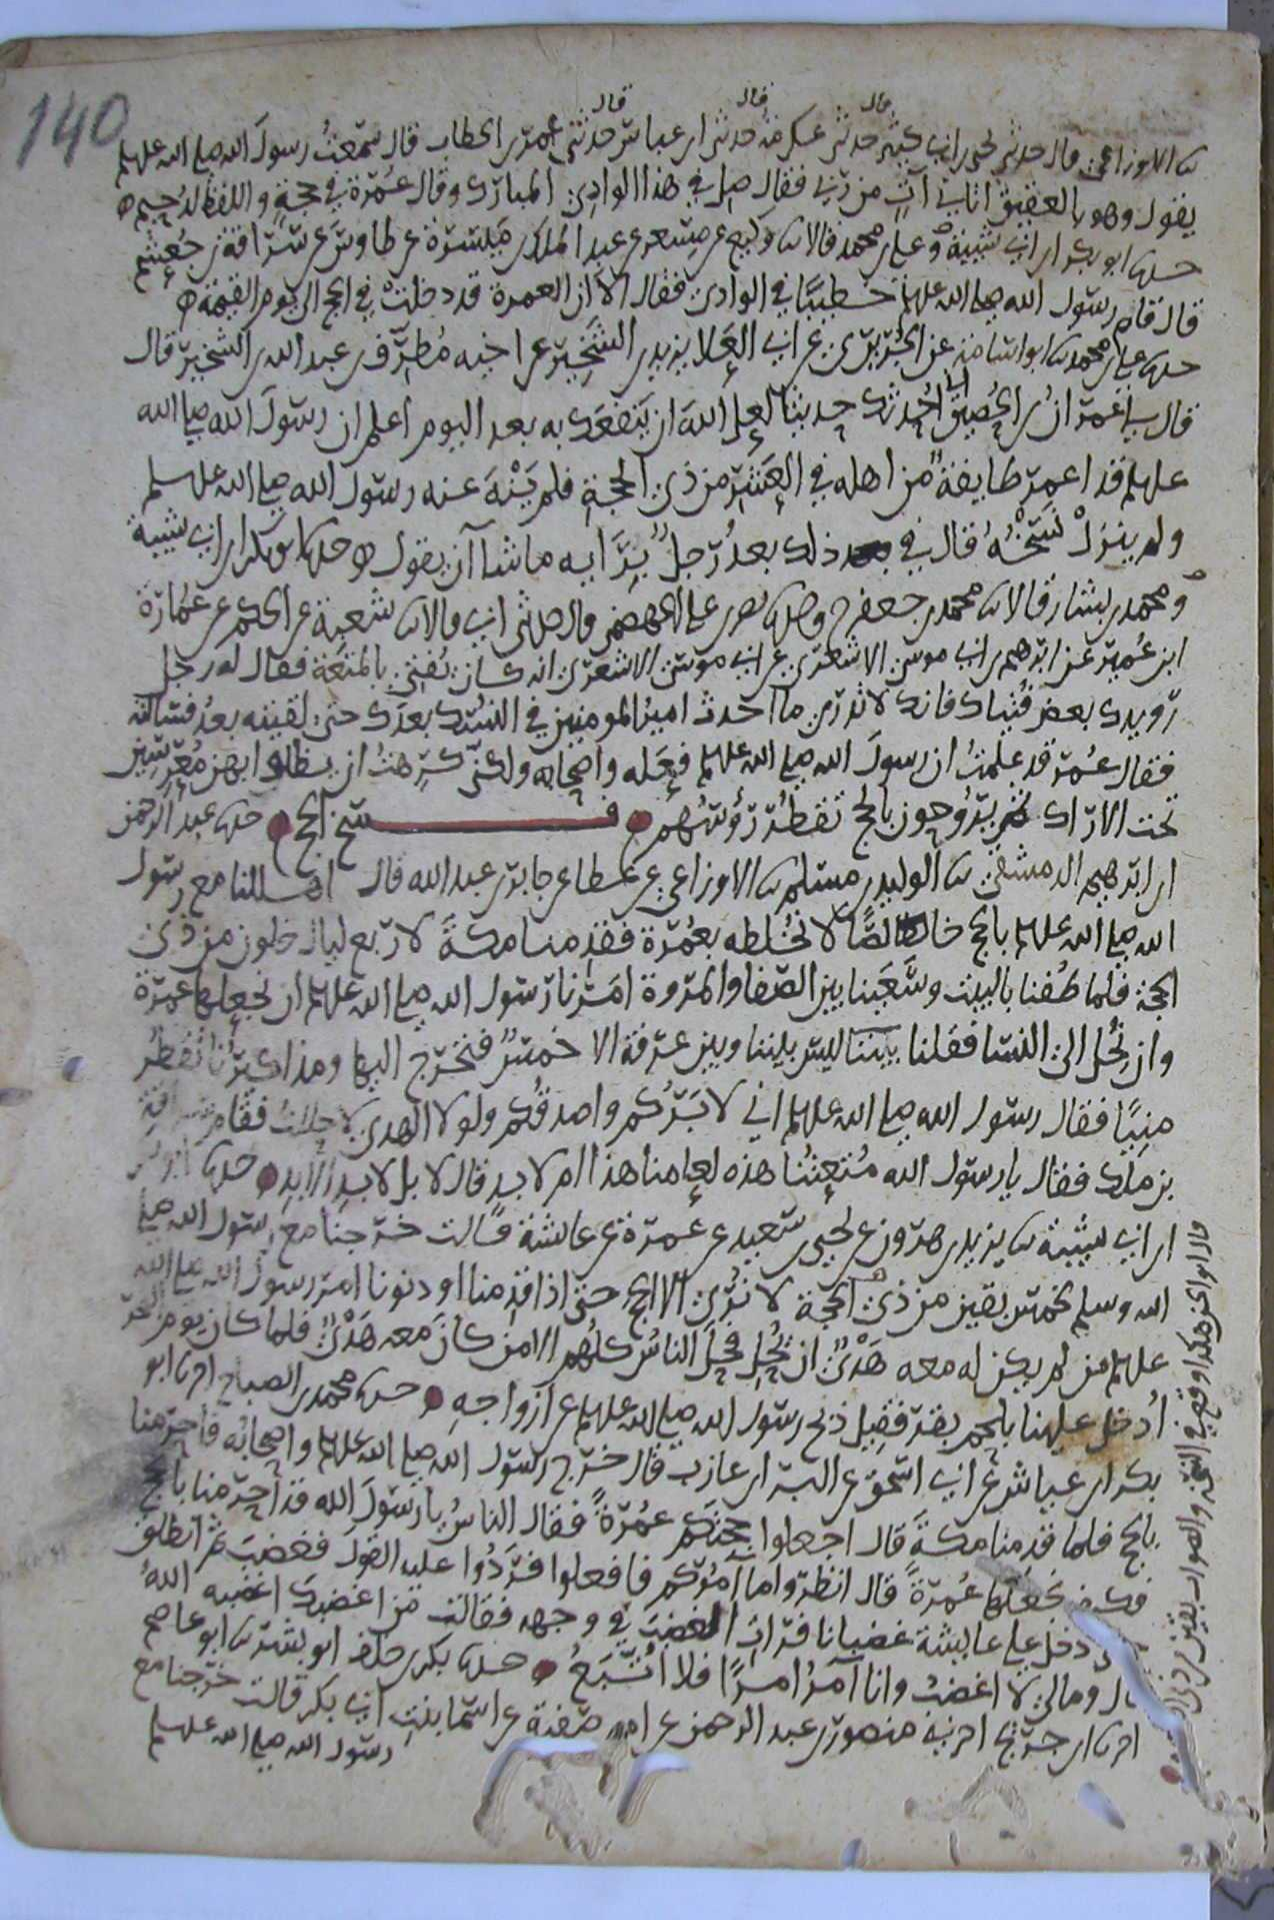 140
قال قال قال
ثنا الاوزاعي قال حدثني يحيى بن ابي كثير حدثني عكرمة حدثني ابن عباس حدثني عمر بن الخطاب قال سمعتُ رسولَ الله صلى الله عليه وسلم
يقول وهو بالعقيق اتاني آتٍ من ربي فقال صل في هذا الوادي المبارك وقال عُمرة في حجةٍ واللفظ لدُحيم ه
حدثنا ابو بكر بن ابي شيبة وعلي بن محمد قالا ثنا وكيع عن مِسعر عن عبد الملك بن ميسرة عن طاوس عن سراقة بن جُعشم
قال قام رسول الله صلى الله عليه وسلم خطيبًا في الوادي فقال الا ان العمرة قد دخلتْ في الحج الى يوم القيمة ه
حدثنا علي بن محمد ثنا ابو اسامة عن الجُريري عن ابي العَلا يزيد بن الشِّخِّير عن اخيه مُطرِّف بن عبد الله بن الشخير قال
قال لي عمران بن الحُصين اني احدثك حديثا لعل الله ان ينفعك به بعد اليوم اعلم ان رسول الله صلى الله
عليه وسلم قد اعمر طايفةً من اهله في العَشر من ذي الحجة فلم يَنْهَ عنه رسول الله صلى الله عليه وسلم
ولم ينزلْ نَسْخُهُ قال في ذلك بعدُ رجلٌ برَايه ما شا آن يقول ه حدثنا ابو بكر بن ابي شيبة
ومحمد بن بشار قالا ثنا محمد بن جعفر ح وحدثنا نصر بن علي الجهضمي قال حدثني ابي قالا ثنا شعبة عن الحكم عن عُمارة
ابن عُمير عن ابرهيم بن ابي موسى الاشعري عن ابي موسى الاشعري انه كان يُفتي بالمتعَة فقال له رجل
رويدك بعض فُتياك فانك لا تدري ما احدث اميرُ المومنين في النُسُك بعدَك حتى لقيته بعدُ فسالته
فقال عُمر قد علمتُ ان رسولَ الله صلى الله عليه وسلم فعَله واصحابه ولكني كرِهتُ ان يظلوا بهن مُعرِّسين
تحت الاراك ثم يرُوحون بالحج تقطُر رؤسُهم فسخ الحج حدثنا عبد الرحمن
ابن ابرهيم الدمشقي ثنا الوليد بن مسلم ثنا الاوزاعي عن عطا عن جابر بن عبد الله قال اهللنا مع رسول
الله صلى الله عليه وسلم بالحج خالصًا لا نخُلطه بعُمرة فقدِمنا مكةَ لاربع ليال خلون من ذي
الحجة فلما طُفنا بالبيت وسَعَينا بين الصفا والمروة امَرَنا رسول الله صلى الله عليه وسلم ان نجعلها عمرَة
وان نحُل الى النسا فقلنا بيننا ليس بيننا وبين عرفة الا خمسٌ فنخرج اليها ومذاكيرُنا تقطُر
منِيًّا فقال رسول الله صلى الله عليه وسلم اني لا بَرُّكم واصدقُكم ولولا الهدي لاحللتُ فقام سراقة
بن مالك فقال يا رسول الله مُتعتُنا هذه لعامنا هذا ام لابدٍ قال لا بل لابد الابد حدثنا ابو بكر
ابن ابي شيبة ثنا يزيد بن هرون عن يحيى بن سعيد عن عمرة عن عايشة قالت خرجنا مع رسول الله صلى
الله وسلم لخمس بقين من ذي الحجة لا نُرى الا الحج حتى اذا قدِمنا او دنونا امر رسول الله صلى الله
عليه وسلم من لم يكن له معه هَدْيٌ ان يُحِل فحِلَ الناسُ كلُهم الا من كانَ معه هَدْيٌ فلما كان يوم النحر
اُدخل علينا بلحم بقر فقيل ذبح رسول الله صلى الله عليه وسلم عن ازواجِهِ حدثنا محمد بن الصباح اخبرنا ابو
بكر بن عياش عن ابي اسحق عن البرا بن عازب قال خرج رسول الله صلى الله عليه وسلم واصحابُه فاحرمنا
بالحج فلما قدِمنا مكةَ قال اجعلوا حجتكم عُمرةً فقال الناسُ يا رسولَ الله قد احرمنا بالحج
فكيف نجعلها عُمرةً قال انظروا ما آمُرُكم فافعلوا فردُوا عليه القولَ فغضبَ ثم انطلق
دخل على عايشة غضبانا فرات الغضب في وجهه فقالت من اغضبك اغضبه اللهُ
قال ومالي لا اغضبُ وانا آمر امرًا فلا اُتَّبعُ حدثنا بكر بن خلف ابو بشر ثنا ابو عاصم
اخبرنا ابن جريج اخبرني منصور بن عبد الرحمن عن امه صفية عن اسما بنتِ ابي بكر قالت خرجنا مع
رسول الله صلى الله عليه وسلم
قال ابو الحسن هكذا وقع في النسخة والصواب بقين من ذي